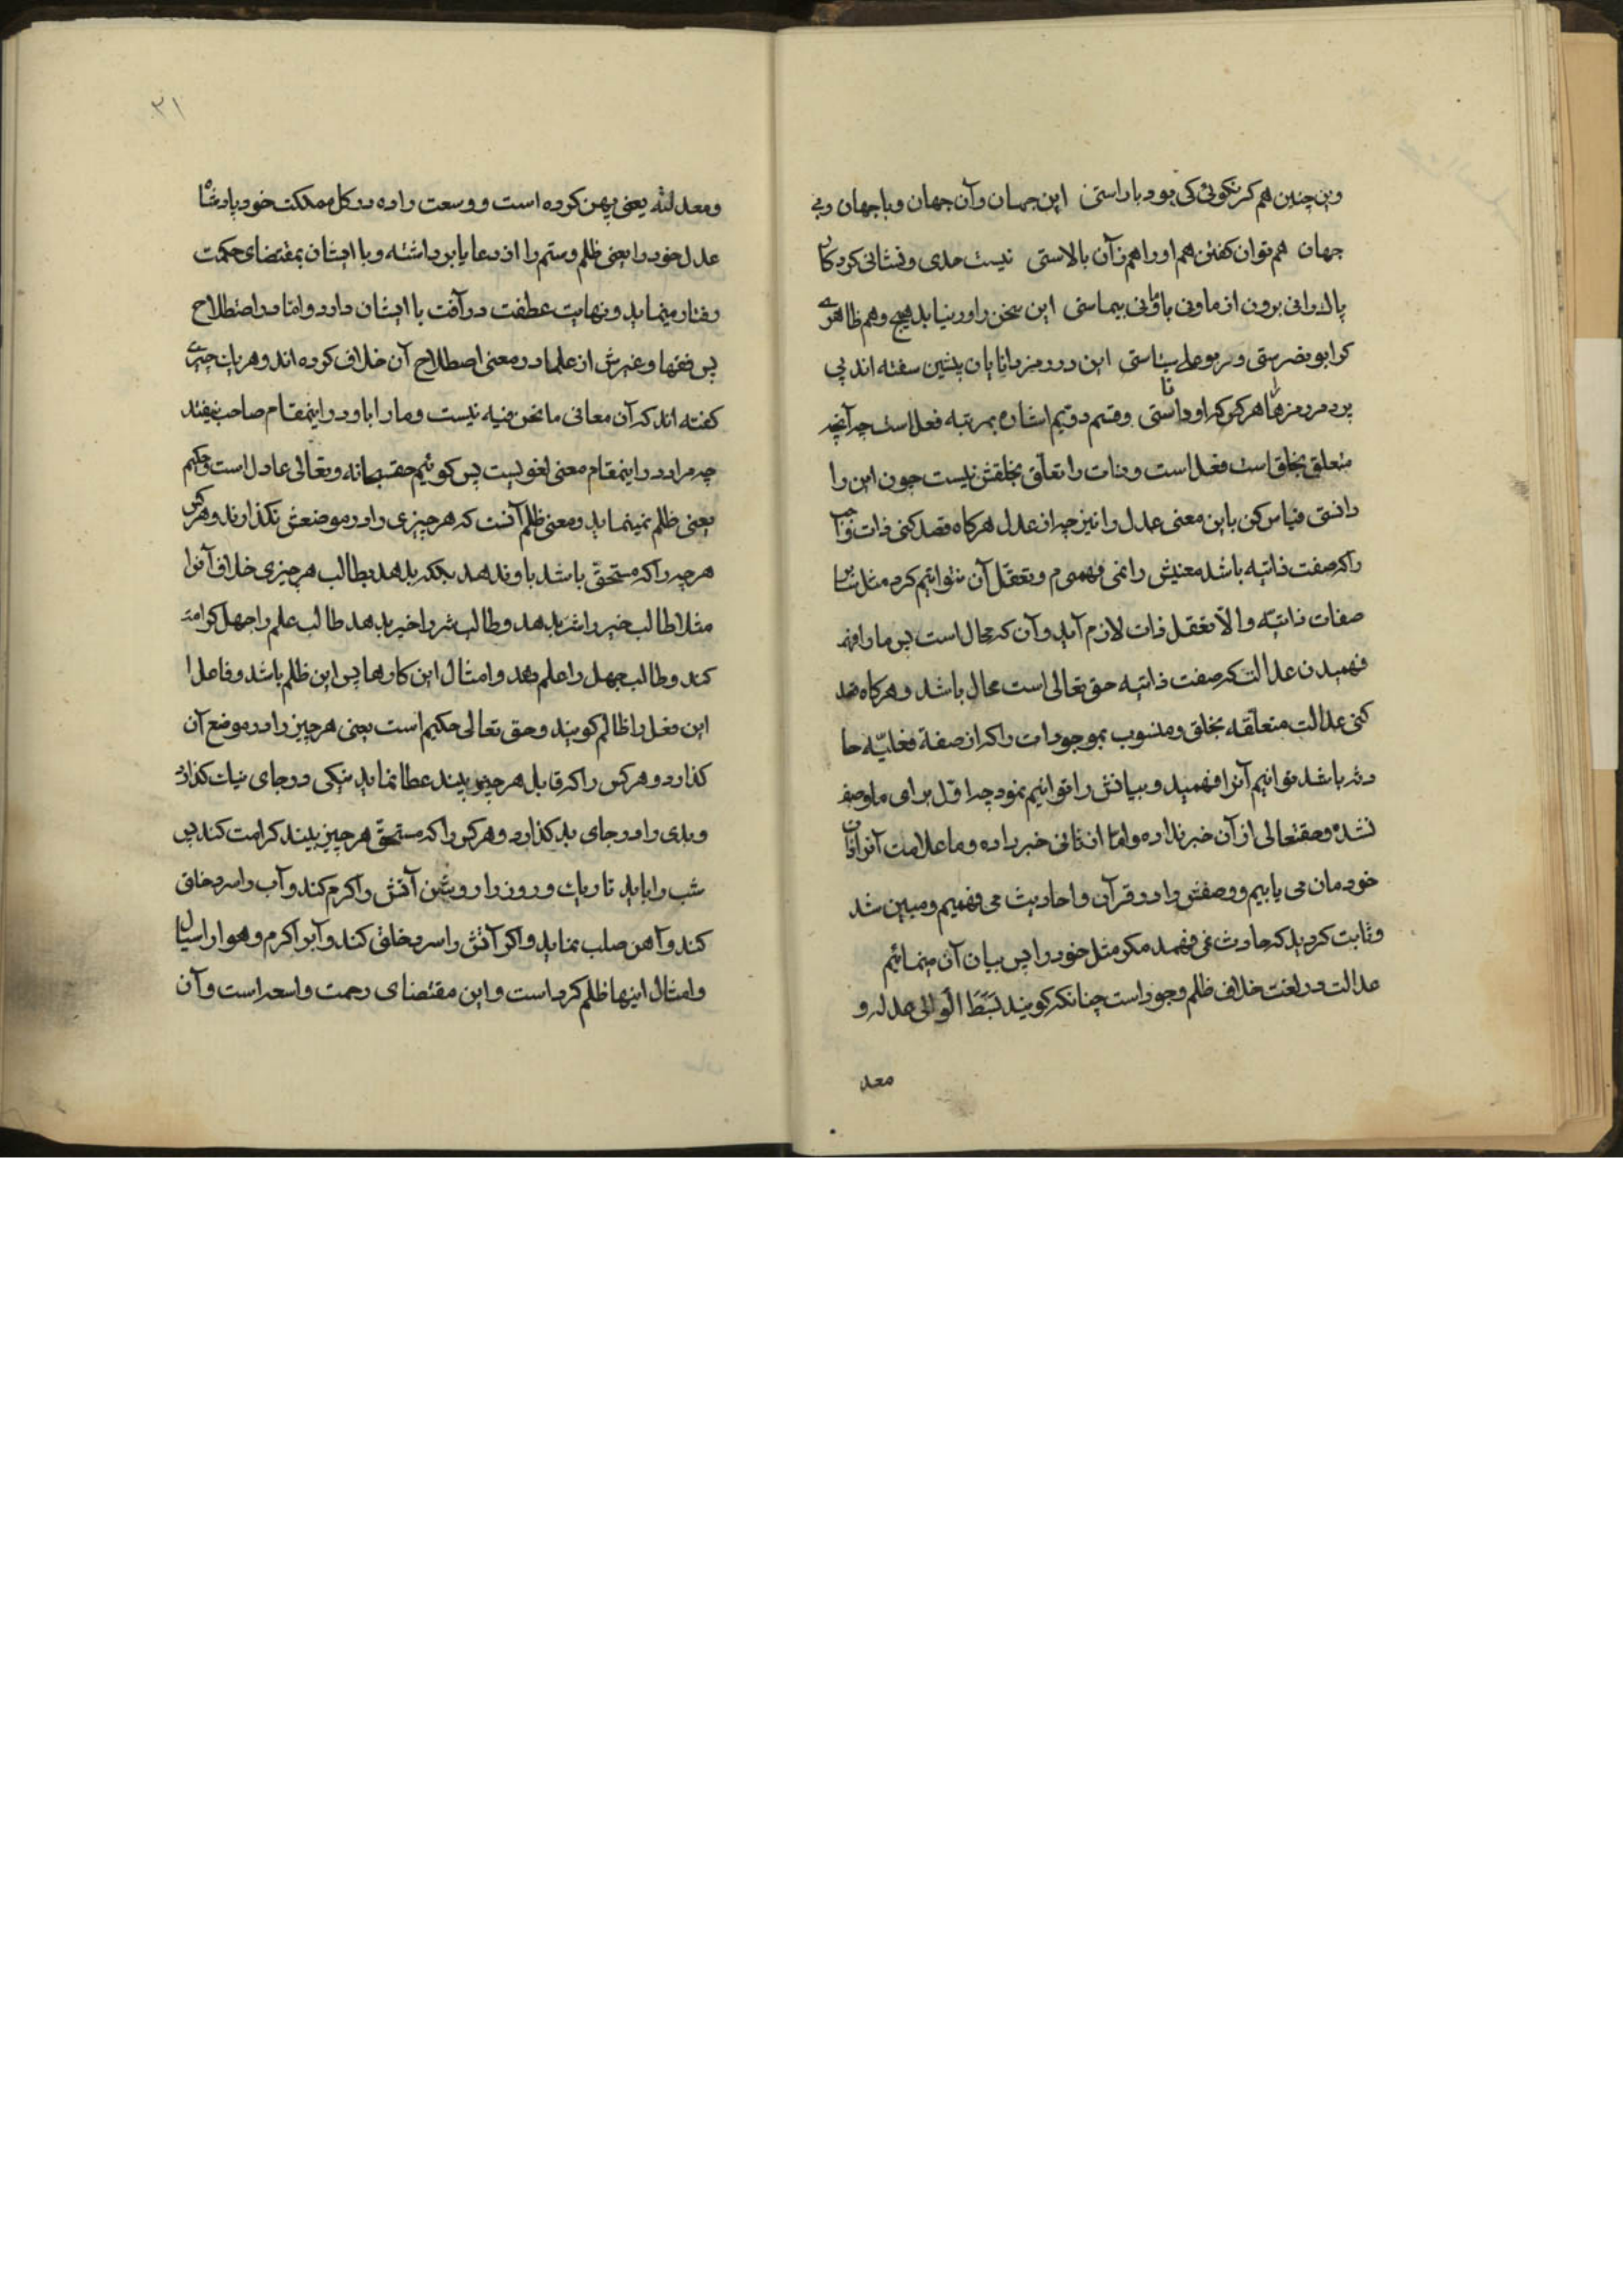 وین چنین هم کر نکوئی کی بود با راستی این جهان وآن جهان وبا جهان وبی
جهان هم توان کفتن هم اورا هم زآن بالاستی نیست حدی ونشانی کردکار
پاك را نی برون از ما ونی با ما نی بیماستی این سخن را در نیابد هیچ وهم ظاهری
کر ابو نصرستی وکر بو علی سیناستی این در رمز دانایان پیشین سفته اند پی
برد در رمزها هر کس که او داناستی وقسم دویم اشاره بمرتبه فعل است چه آنچه
متعلق بخلق است فعل است وذات را تعلق بخلقش نیست چون این را
دانستی قیاس کن باین معنی عدل را نیز چه از عدل هرکاه قصد کنی ذات واجب
را که صفت ذاتیه باشد معنیش را نمی فهمیم وتعقل آن نتوانیم کرد مثل سایر
صفات ذاتیه والا تعقل ذات لازم آید وآن که محال است پس ما را
فهمیدن عدالت که صفت ذاتیه حق تعالی است محال باشد وهرکاه قصد
کنی عدالت متعلقه بخلق ومنسوب بموجودات را که از صفة فعلیّه حا
دثه باشد توانیم آنرا فهمید وبیانش را توانیم نمود چه اول برای ما وصف
نشده وحقتعالی از آن خبر نداده واما از ثانی خبر داده وما علامت آنرا در
خودمان می یابیم ووصفش را در قرآن واحادیث می فهمیم ومبین شد
وثابت کردید که حادث نمی فهمد مکر مثل خود را پس بیان آن مینمائیم
عدالت در لغت خلاف ظلم وجور است چنانکه کویند بَسَطَ الوالی عدله و
معد
۳۱
ومعدلته یعنی پهن کرده است ووسعت داده در کل مملکت خود پادشاه
عدل خود را یعنی ظلم وستم را از رعایا برداشته وبا ایشان بمقتضای حکمت
رفتار مینماید ونهایت عطفت ورآفت با ایشان دارد واما در اصطلاح
پس فقها وغیرش از علما در معنی اصطلاح آن خلاف کرده اند وهریك چیزی
کفته اند که آن معانی ما نحن فیه نیست وما را با او در اینمقام صاحب نیفتد
چه مراد در اینمقام معنی لغویست پس کوئیم حقسبحانه وتعالی عادل است وحکیم
یعنی ظلم نمینماید ومعنی ظلم آنست که هر چیزی را در موضعش نکذارند وهرکس
هر چه را که مستحقّ باشد باو ندهد بجکه بدهد بطالب هر چیزی خلاف آنرا
مثلا طالب خیر را شر بدهد وطالب شر را خیر بدهد طالب علم را جهل کرامت
کند وطالب جهل را علم دهد وامثال این کارها پس این ظلم باشد وفاعل
این فعل را ظالم کویند وحق تعالی حکیم است یعنی هر چیز را در موضع آن
کذارد وهر کس را که قابل هر چیز بیند عطا نماید نیکی در جای نیك کذارد
وبدی را در جای بد کذارد وهر کس را که مستحق هر چیز بیند کرامت کند پس
شب را باید تاریك وروز را روشن آتش را کرم کند وآب را سرد خلق
کند وآهن صلب نماید واکر آتش را سرد خلق کند وآبرا کرم وهوا را سیال
وامثال اینها ظلم کرد است واین مقتضای رحمت واسعه است وآن